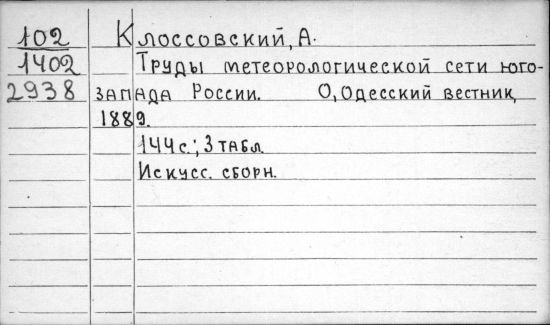 102 Клоссовский, А.
1402 Труды метеорологической сети юго-
2938 запада России. О, Одесский вестник,
1889.
144с.; 3 табл.
Искусс. сборн.